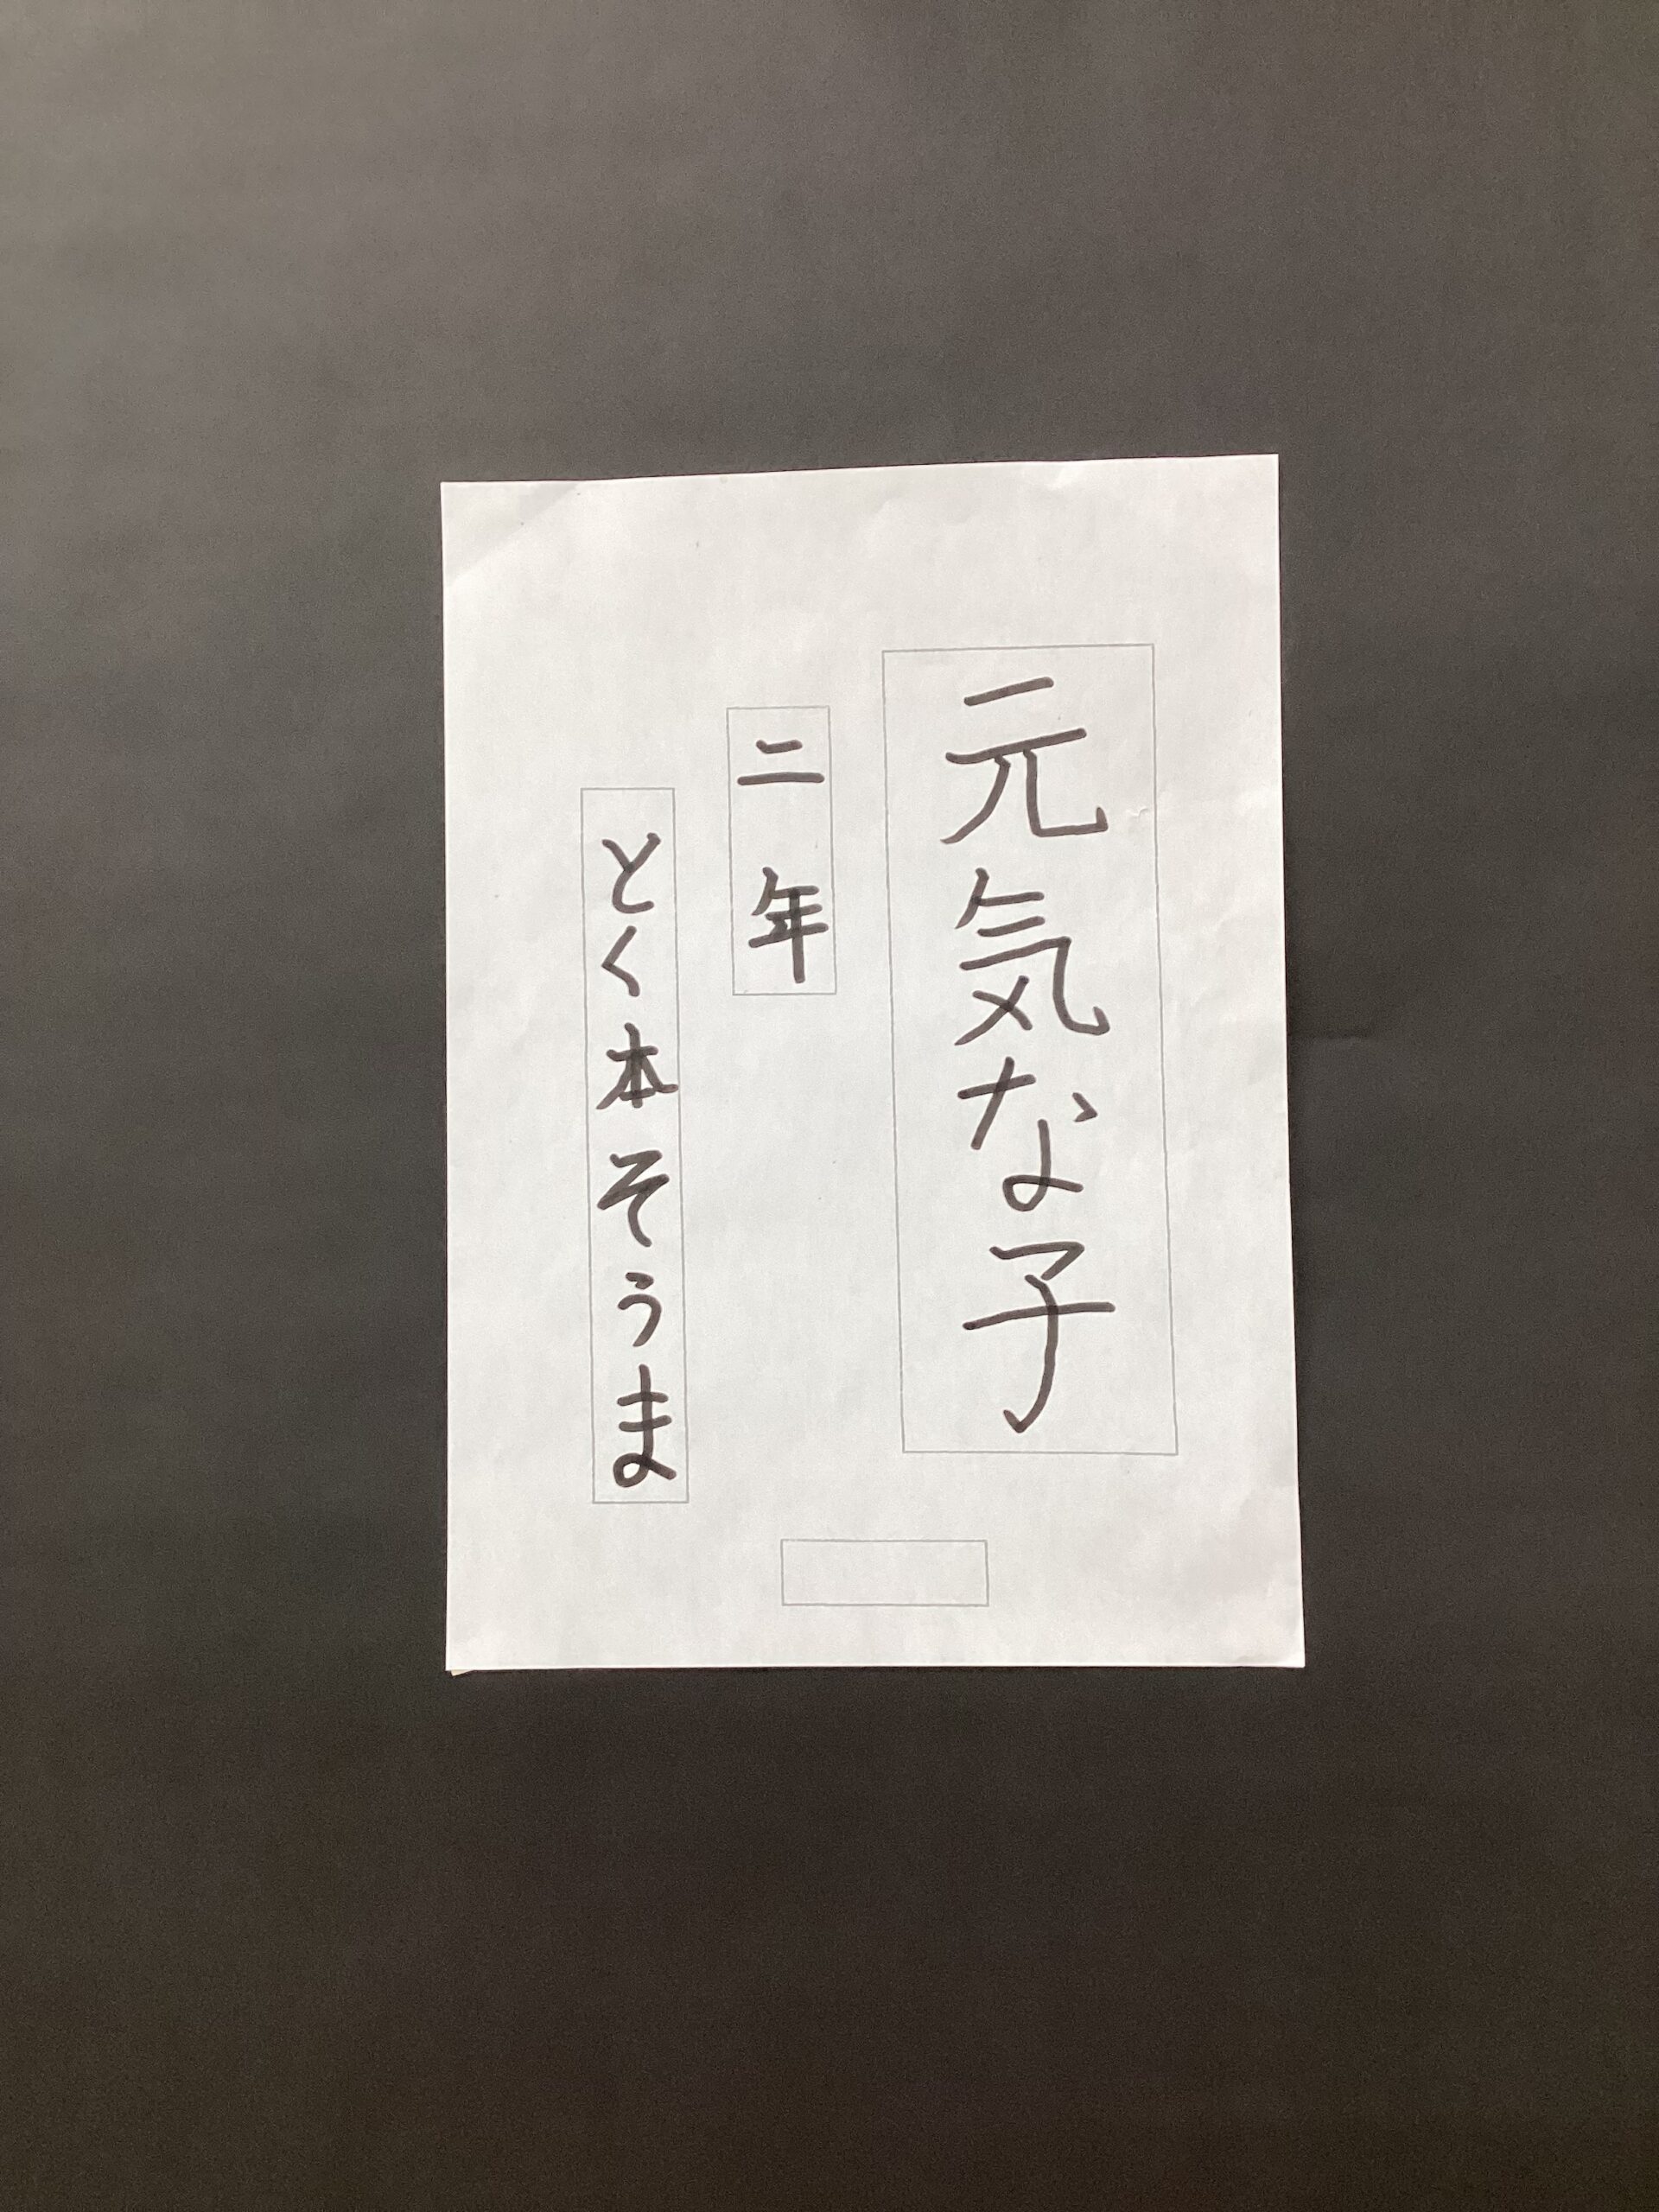 元気な子
二年
とく本そうま